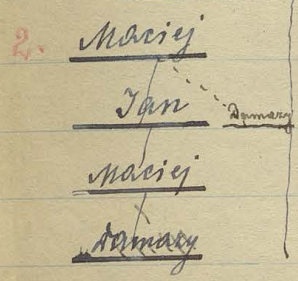 2. Maciej
Jan
Damazy
Maciej
Damazy